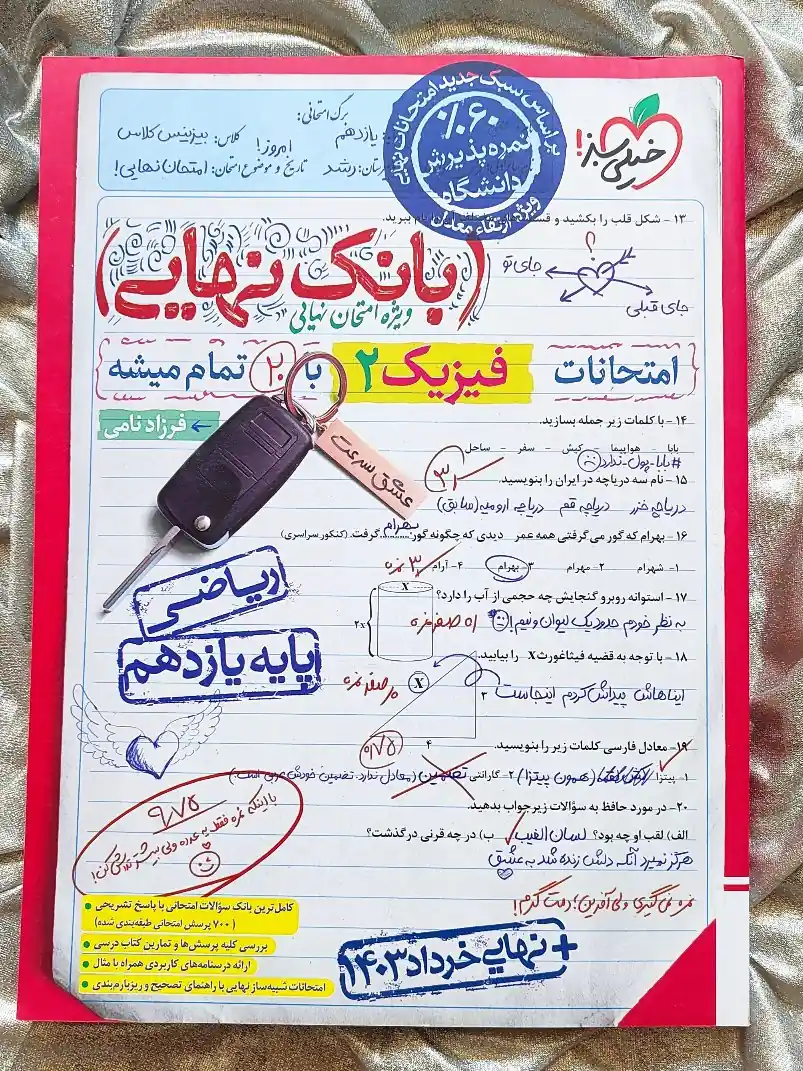 خیلی سبز!
بر اساس سبک جدید امتحانات نهایی
٪۶۰
نمره پذیرش
دانشگاه
ویژه ارتقاء معدل
برگ امتحانی:
یازدهم
کلاس: بیزینس کلاس
امروز!
رشد
تاریخ و موضوع امتحان: امتحان نهایی!
۱۳- شکل قلب را بکشید و
نام ببرید.
؟
جای تو
جای قبلی
(بانک نهایی)
ویژه امتحان نهایی
امتحانات فیزیک ۲ با ۲۰ تمام میشه
← فرزاد نامی
عشق سرعت
۱۴- با کلمات زیر جمله بسازید.
بابا - هواپیما - کیش - سفر - ساحل
#بابا-پول-ندارد
۱۵- نام سه دریاچه در ایران را بنویسید.
دریاچه خزر دریاچه قم دریاچه ارومیه (سابق)
۱۶- بهرام که گور می گرفتی همه عمر دیدی که چگونه گور بهرام گرفت. (کنکور سراسری)
۱- شهرام ۲- مهرام ۳- بهرام ۴- آرام
۱۷- استوانه روبرو گنجایش چه حجمی از آب را دارد؟
X
۲X
به نظر خودم حدود یک لیوان و نیم!
۱۸- با توجه به قضیه فیثاغورث X را بیابید.
X
۳
۴
ایناهاش پیداش کردم اینجاست
ریاضی
پایه یازدهم
۱۹- معادل فارسی کلمات زیر را بنویسید.
۱- پیتزا (همون پیتزا) ۲- گارانتی تضمین (معادل ندارد. تضمین خودش عربی است.)
۲۰- در مورد حافظ به سؤالات زیر جواب بدهید.
الف) لقب او چه بود؟ لسان الغیب ب) در چه قرنی درگذشت؟
هرگز نمیرد آنکه دلش زنده شد به عشق
۹/۷۵
با اینکه نمره فقط یه عدده ولی بیشتر تلاش کن!
نمره نمی‌گیری ولی آفرین! دمت گرم!
کامل‌ترین بانک سؤالات امتحانی با پاسخ تشریحی
(۷۰۰ پرسش امتحانی طبقه‌بندی شده)
بررسی کلیه پرسش‌ها و تمارین کتاب درسی
ارائه درسنامه‌های کاربردی همراه با مثال
امتحانات شبیه‌ساز نهایی با راهنمای تصحیح و ریزبارم‌بندی
+ نهایی خرداد ۱۴۰۳